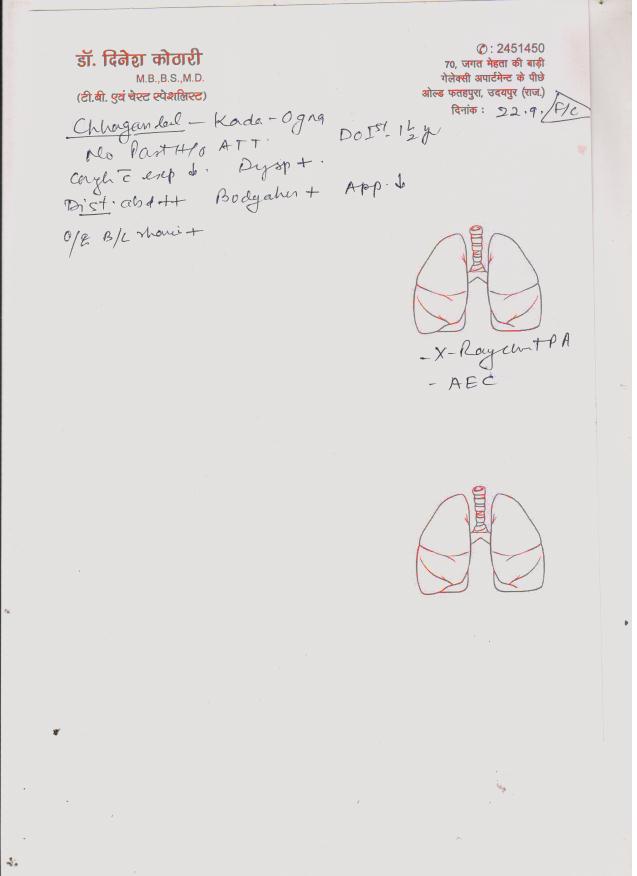 डॉ. दिनेश कोठारी
M.B.,B.S.,M.D.
(टी.बी. एवं चेस्ट स्पेशलिस्ट)
✆: 2451450
70, जगत मेहता की बाड़ी
गेलेक्सी अपार्टमेन्ट के पीछे
ओल्ड फतहपुरा, उदयपुर (राज.)
दिनांक : 22.9. F/C
Chhaganlal - Kada - Ogna
No Past H/o ATT. 1 1/2 y
Cough c̄ exp ↓. Dysp +.
Dist. abd ++ Bodyaches + App. ↓
O/E B/L rhonchi +
- X-Ray chest PA
- AEC